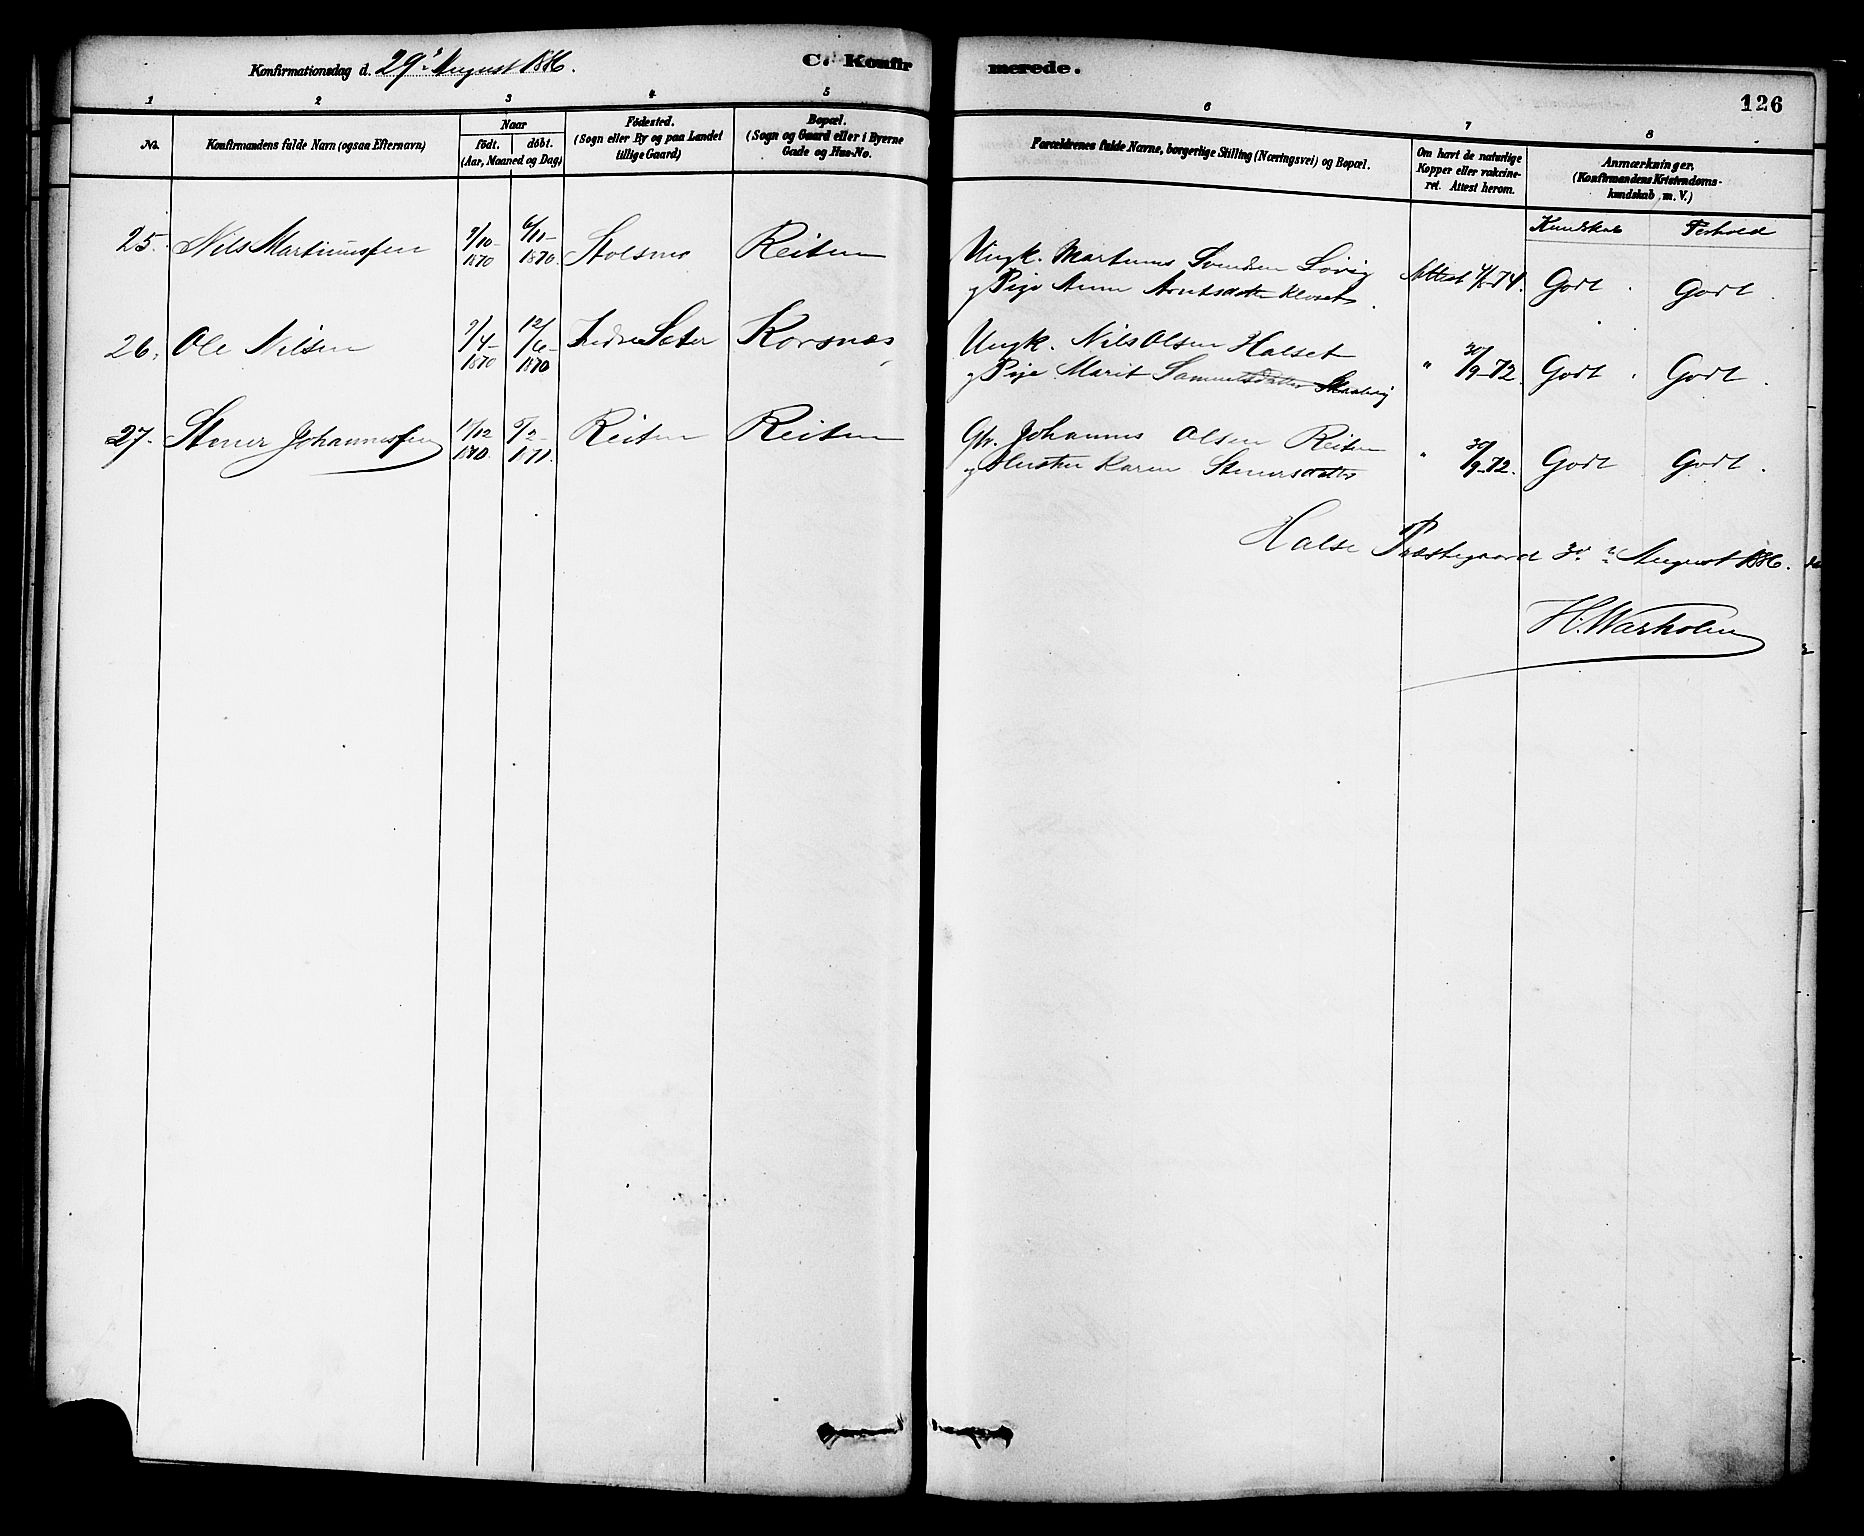 Konfirmationsdag d. 29de August 1886.
C. Konfirmerede.
126
1 2 3 4 5 6 7 8
No.
Konfirmandens fulde Navn (ogsaa Efternavn)
Naar
födt. döbt.
(Aar, Maaned og Dag)
Födested.
(Sogn eller By og paa Landet
tillige Gaard)
Bopæl.
(Sogn og Gaard eller i Byerne
Gade og Hus-No.
Forældrenes fulde Navne, borgerlige Stilling (Næringsvei) og Bopæl.
Om havt de naturlige
Kopper eller vakcine-
ret. Attest herom.
Anmærkninger.
(Konfirmandens Kristendoms-
kundskab m. V.)
Kundskab Forhold
25. Nils Martinussen 9/10-1870 6/11-1870. Stolsnes Reiten
Ungk. Martinus Svendsen
og Pige Anne Arntsdatter
Attest 74. Godt. Godt.
26. Ole Nilsen 9/4-1870 12/6-1870 Indre Sæter Korsnæs
Ungk. Nils Olsen Halset
og Pige Marit Samuelsdatter
" 30/9-72. Godt. Godt.
27. Stener Johannessen 11/12 1870. 5/2-1871. Reiten Reiten
Gbr. Johannes Olsen Reiten
og Hustru Karen Stenersdatter
" 30/9-72. Godt Godt.
Halse Præstegaard 30 August 1886.
H. Warholm